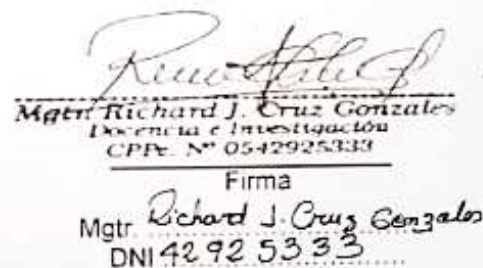 Mgtr. Richard J. Cruz Gonzales
Docencia e Investigación
CPPe. Nº 0542925333
Firma
Mgtr. Richard J. Cruz Gonzales
DNI 42925333